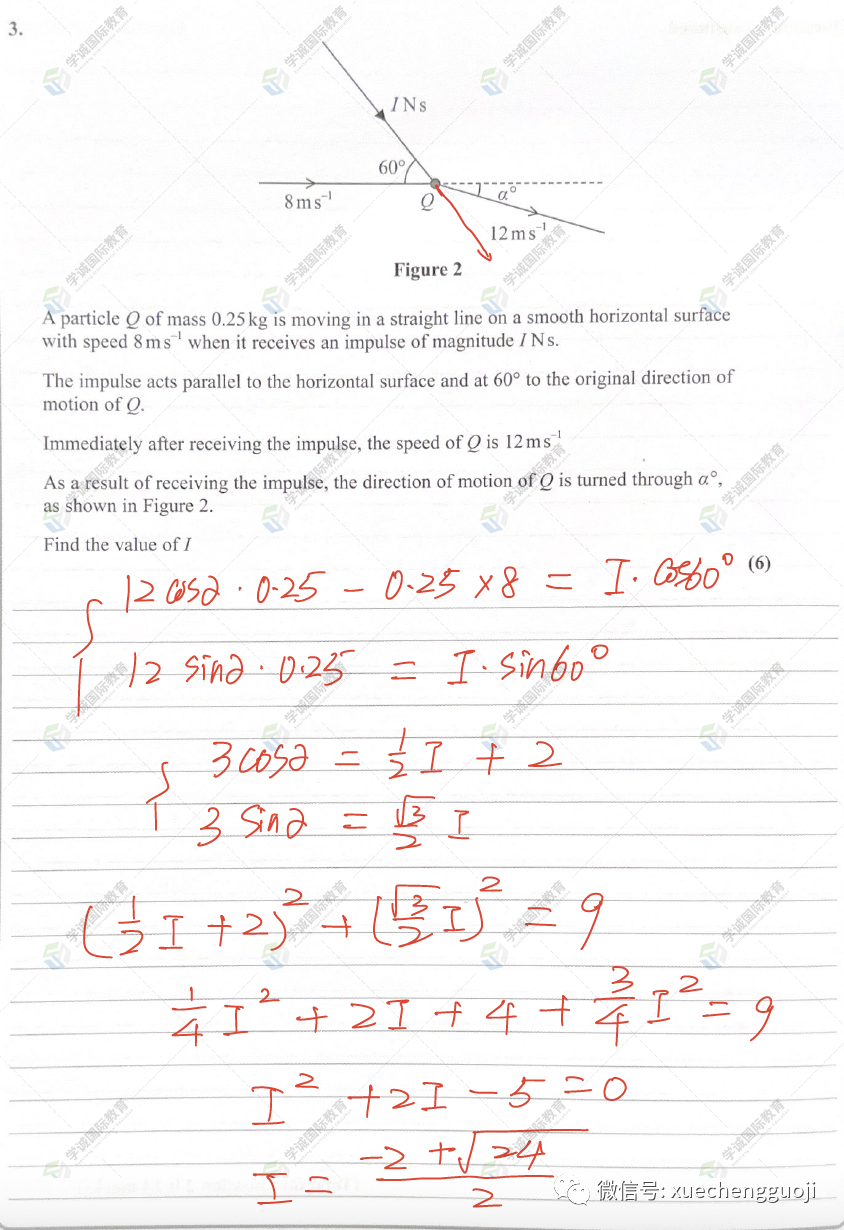 3.
I N s
60°
8 m s⁻¹
Q
α°
12 m s⁻¹
Figure 2
A particle Q of mass 0.25 kg is moving in a straight line on a smooth horizontal surface
with speed 8 m s⁻¹ when it receives an impulse of magnitude I N s.
The impulse acts parallel to the horizontal surface and at 60° to the original direction of
motion of Q.
Immediately after receiving the impulse, the speed of Q is 12 m s⁻¹
As a result of receiving the impulse, the direction of motion of Q is turned through α°,
as shown in Figure 2.
Find the value of I
(6)
12 cos∂ · 0.25 − 0.25 × 8 = I · cos60°
12 sin∂ · 0.25 = I · sin60°
3 cos∂ = 1/2 I + 2
3 sin∂ = √3/2 I
(1/2 I + 2)² + (√3/2 I)² = 9
1/4 I² + 2I + 4 + 3/4 I² = 9
I² + 2I − 5 = 0
I = (−2 + √24)/2
微信号: xuechengguoji
学诚国际教育